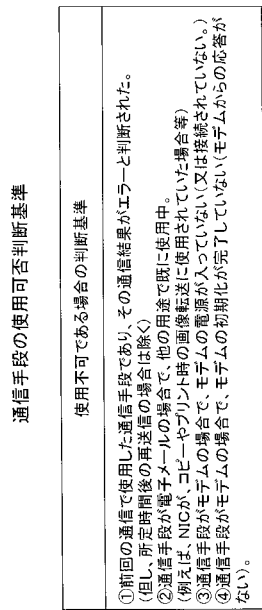 通信手段の使用可否判断基準
使用不可である場合の判断基準
①前回の通信で使用した通信手段であり、その通信結果がエラーと判断された。
(但し、所定時間後の再送信の場合は除く)
②通信手段が電子メールの場合で、他の用途で既に使用中。
(例えば、NICが、コピーやプリント時の画像転送に使用されていた場合等)
③通信手段がモデムの場合で、モデムの電源が入っていない(又は接続されていない。)
④通信手段がモデムの場合で、モデムの初期化が完了していない(モデムからの応答が
ない)。